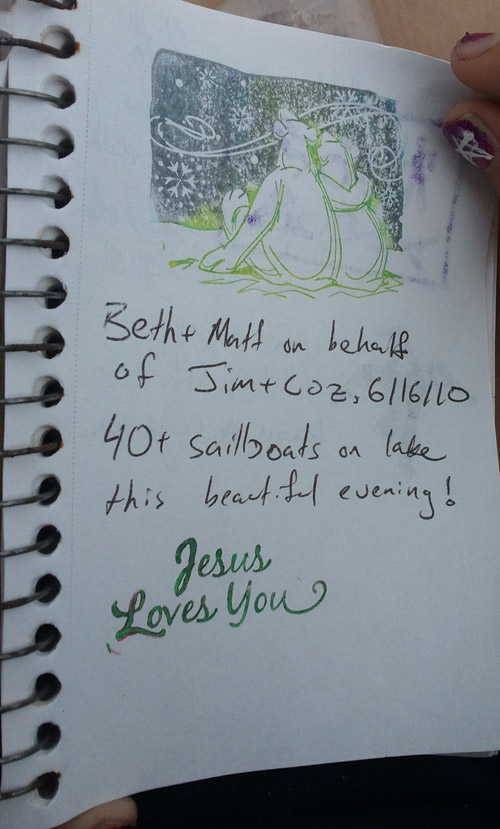 Beth + Matt on behalf
of Jim + Coz, 6/16/10
40+ sailboats on lake
this beautiful evening!
Jesus
Loves You